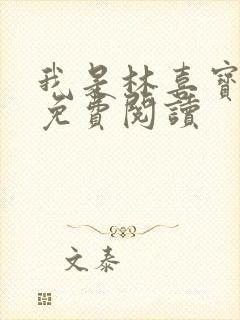 我是林喜寶
免費閱讀
文泰